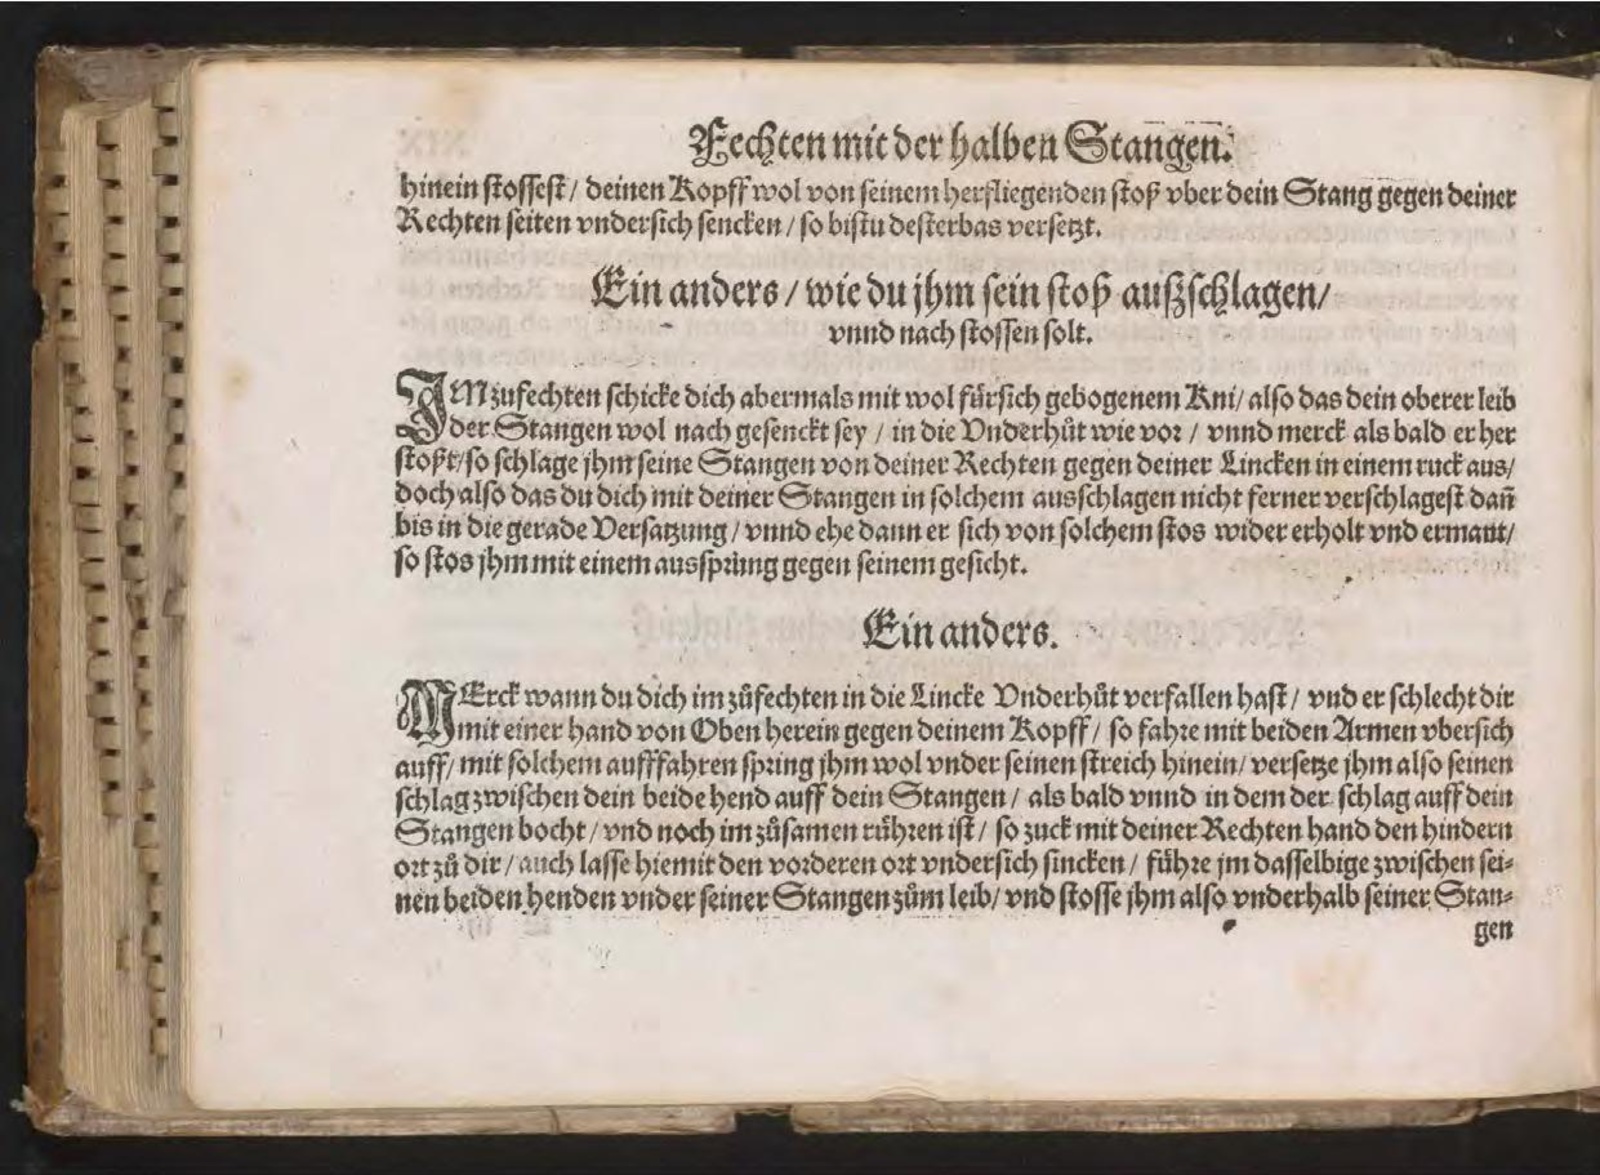 Fechten mit der halben Stangen.
hinein stossest / deinen Kopff wol von seinem herfliegenden stoß vber dein Stang gegen deiner
Rechten seiten vndersich sencken / so bistu desterbas versetzt.
Ein anders / wie du jhm sein stoß außschlagen /
vnnd nach stossen solt.
IM zufechten schicke dich abermals mit wol fürsich gebogenem Kni / also das dein oberer leib
der Stangen wol nach gesenckt sey / in die Vnderhůt wie vor / vnnd merck als bald er her
stoßt / so schlage jhm seine Stangen von deiner Rechten gegen deiner Lincken in einem ruck aus /
doch also das du dich mit deiner Stangen in solchem ausschlagen nicht ferner verschlagest dañ
bis in die gerade Versatzung / vnnd ehe dann er sich von solchem stos wider erholt vnd ermant /
so stos jhm mit einem aussprung gegen seinem gesicht.
Ein anders.
MErck wann du dich im zůfechten in die Lincke Vnderhůt verfallen hast / vnd er schlecht dir
mit einer hand von Oben herein gegen deinem Kopff / so fahre mit beiden Armen vbersich
auff / mit solchem aufffahren spring jhm wol vnder seinen streich hinein / versetze jhm also seinen
schlag zwischen dein beide hend auff dein Stangen / als bald vnnd in dem der schlag auff dein
Stangen bocht / vnd noch im zůsamen rühren ist / so zuck mit deiner Rechten hand den hindern
ort zů dir / auch lasse hiemit den vorderen ort vndersich sincken / führe jm dasselbige zwischen sei-
nen beiden henden vnder seiner Stangen zům leib / vnd stosse jhm also vnderhalb seiner Stan-
gen